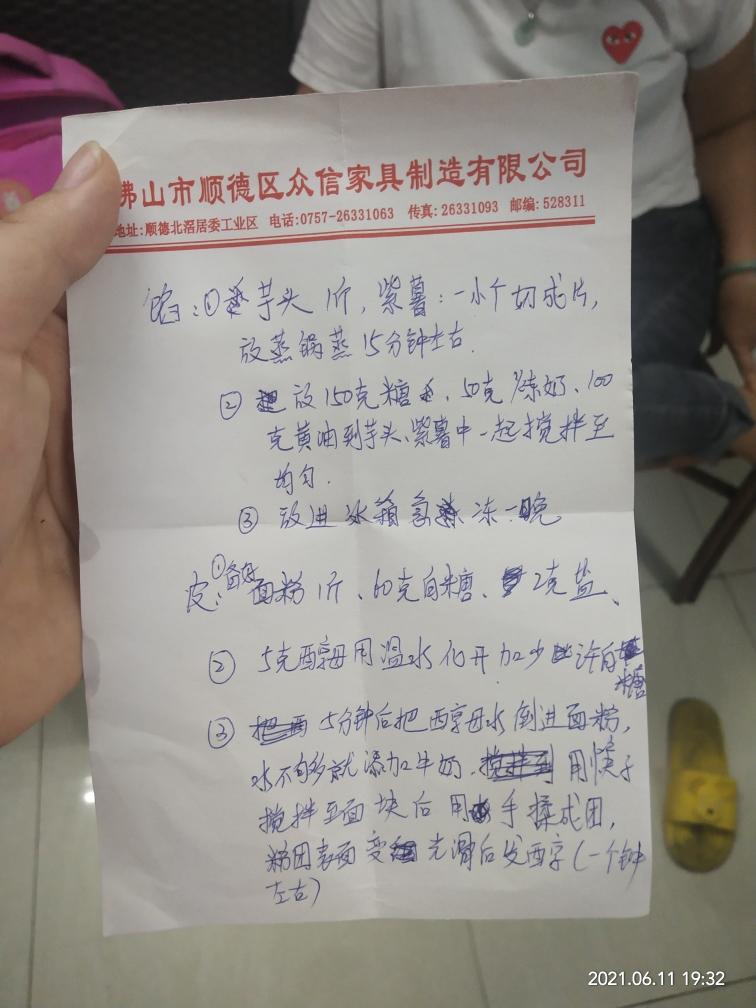 佛山市顺德区众信家具制造有限公司
地址:顺德北滘居委工业区 电话:0757-26331063 传真:26331093 邮编:528311
馅:①芋头1斤,紫薯:一小个切成片,
放蒸锅蒸15分钟左右.
② 放150克糖、50克炼奶、100
克黄油到芋头、紫薯中一起搅拌至
均匀.
③ 放进冰箱急冻一晚
皮:①备好面粉1斤、60克白糖、2克盐、
② 5克酵母用温水化开加少许白糖
③ 5分钟后把酵母水倒进面粉,
水不够多就添加牛奶.用筷子
搅拌至面块后用手揉成团,
粉团表面变光滑后发酵(一个钟
左右)
2021.06.11 19:32